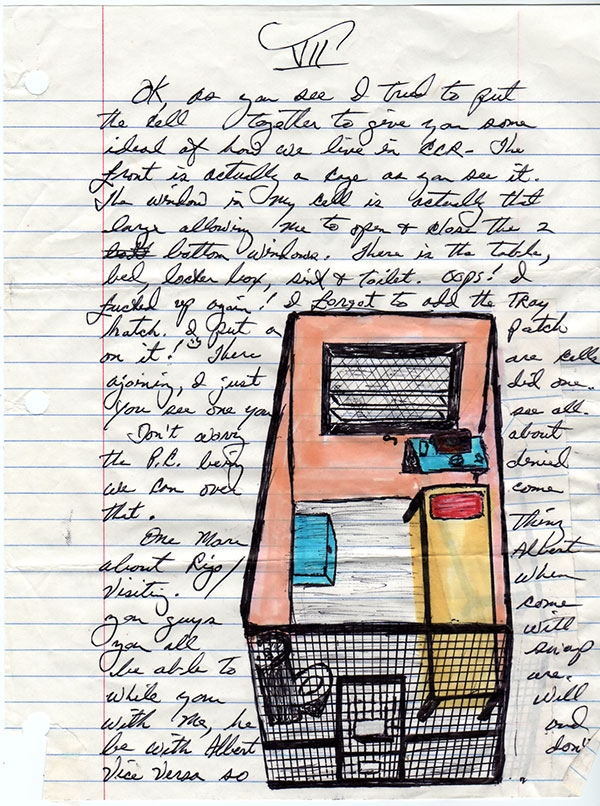 VII
OK, as you see I tried to put
the cell together to give you some
ideal of how we live in CCR - The
front is actually a cage as you see it.
The window in my cell is actually that
large allowing me to open & close the 2
bottom windows. There is the table,
bed, locker box, sink & toilet. OOPS! I
fucked up again! I forgot to add the Tray
hatch. I put a patch
on it! There are cells
ajoining, I just did one.
You see one you see all.
Don't worry about
the P.C. being denied
we can over come
that.
One more Thing
about Rigo / Albert
Visiting. When
you guys come
you all will
be able to swap
while your are.
with me, he will
be with Albert and
Vice Versa so don't